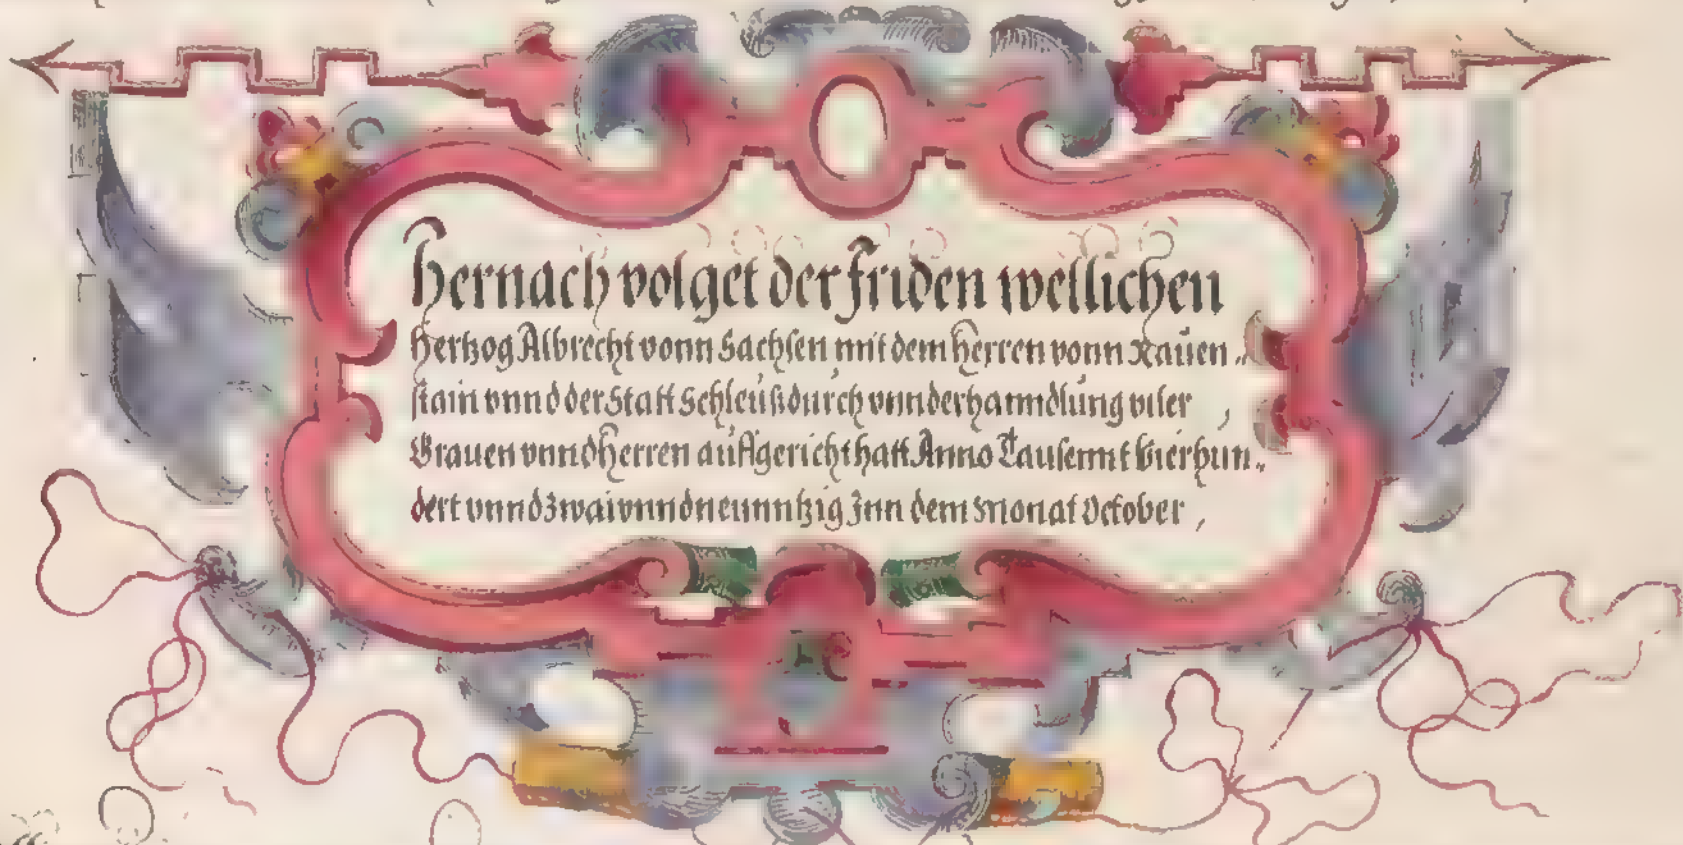 Hernach volget der friden wellichen
Hertzog Albrecht vonn Sachsen mit dem Herren vonn Rauen⸗
stain vnnd der Statt Schleuß durch vnnderhanndlung viler
Grauen vnnd Herren auffgericht hatt Anno Tausennt Vierhun⸗
dert vnnd zwaivnndneunntzig Inn dem Monat October,